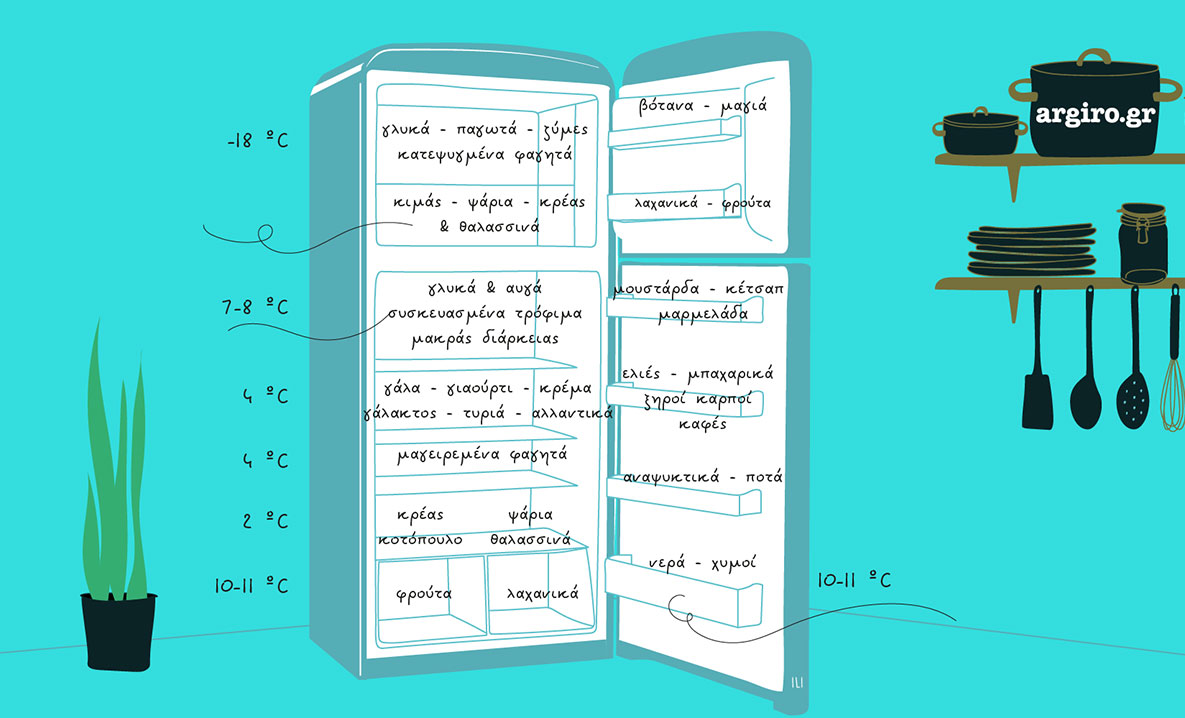 -18 ºC
γλυκά - παγωτά - ζύμες
κατεψυγμένα φαγητά
κιμάς - ψάρια - κρέας
& θαλασσινά
βότανα - μαγιά
λαχανικά - φρούτα
7-8 ºC
γλυκά & αυγά
συσκευασμένα τρόφιμα
μακράς διάρκειας
4 ºC
γάλα - γιαούρτι - κρέμα
γάλακτος - τυριά - αλλαντικά
4 ºC
μαγειρεμένα φαγητά
2 ºC
κρέας ψάρια
κοτόπουλο θαλασσινά
10-11 ºC
φρούτα λαχανικά
μουστάρδα - κέτσαπ
μαρμελάδα
ελιές - μπαχαρικά
ξηροί καρποί
καφές
αναψυκτικά - ποτά
νερά - χυμοί
10-11 ºC
argiro.gr